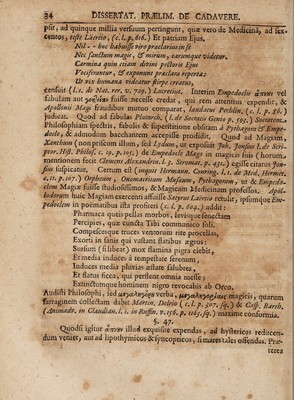 34 DISSERTAT. PRÆLIM. DE CADAVERE.
psit, ad quinque millia versuum pertingunt, quæ vero de Medicina, ad sex-
centos, teste Laertio, (c. l. p. 616.) Et patriam Ejus,
Nil - - hoc habuisse viro præclarius in se
Nec sanctum magis, & mirum, carumque videtur.
Carmina quin etiam divini pectoris Ejus
Vociferantur, & exponunt præclara reperta:
Ut vix humana videatur stirpe creatus,
censuit (l. 1. de Nat. rer. v. 729.) Lucretius. Interim Empedoclis ἄπνουν vel
fabulam aut γοητείας fuisse necesse credat, qui rem attentius expendit, &
Apollonii Magi Ereudibus mutuo comparat, laudatus Pechlin, (c. l. p. 86.)
judicat. Quod ad fabulas Plutarch, (l. de Socratis Genio p. 580.) Socratem,
Philosophiam spectris, fabulis & superstitione obsitam à Pythagora & Empe-
docle, & admodum bacchantem accepisse prodidit. Quod ad Magiam,
Xanthum (non priscum illum, sed Lydum, ut exposuit Joh. Jonsius l. de Scri-
ptor. Hist. Philos. c. 19. p. 105.) de Empedocle Mago in magicis suis (horum,
mentionem fecit Clemens Alexandrin. l. 3. Stromat. p. 431.) egisse citatus Jon-
sius suspicatur. Certum est (inquit Hermann. Conring. l. 1. de Med. Hermet.
c. 11. p. 107.) Orpheum, Onomacritum Musæum, Pythagoram, ut & Empedo-
clem Magiæ fuisse studiosissimos, & Magicam Medicinam professos. Apol-
lodorum huic Magiam exercenti astitisse Satyrus Laertio retulit, ipsumque Em-
pedoclem in poëmatibus ista profiteri (c. l. p. 604.) addit:
Pharmaca queis pellas morbos, levisque senectam
Percipies, quæ cuncta Tibi communico soli.
Compescesque truces ventorum rite procellas,
Exorti in sanis qui vastant flatibus agros:
Sursum (si libeat) mox flamina pigra ciebis,
Et media induces à tempestate serenum,
Induces media pluvias æstate salubres,
Et flatus feca, qui perflent omnia messe:
Extinctumque hominem nigro revocabis ab Orco.
Audisti Philosophi, sed μεγαληγόρου verba, μεγαληγορίας magicis, quarum
farraginem collectam dabit Martin. Delrio (c. l. p. 307. sq.) & Casp. Barth.
(Animadv. in Claudian. l. 1. in Ruffin. v. 156. p. 1163. sq.) maxime conformia.
§. 47.
Quodsi igitur ἄπνουν illud exquisite expendas, ad hystericas reducen-
dum veniet, aut ad lipothymicos & syncopticos, si mares tales offendas. Præ-
terea